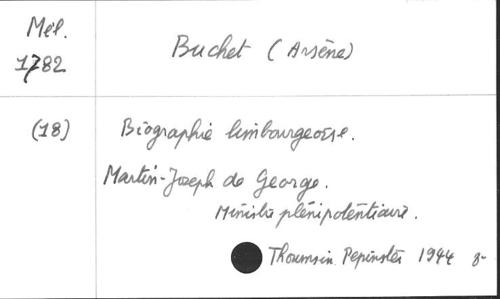 Mél.
1782
Buchet (Arsène)
(18)
Biographie limbourgeoise.
Martin-Joseph de George.
Ministre plénipotentiaire.
Thoumsin Pepinster 1944 8-